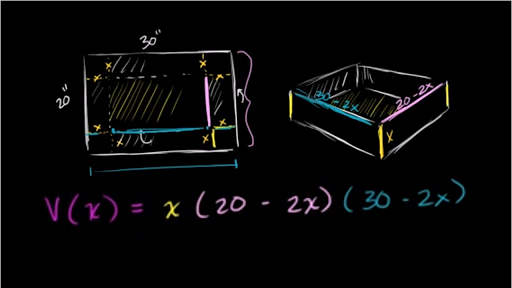 30"
x x
x x
20"
x x
x x
30 - 2x
20 - 2x
x
V(x) = x (20 - 2x) (30 - 2x)